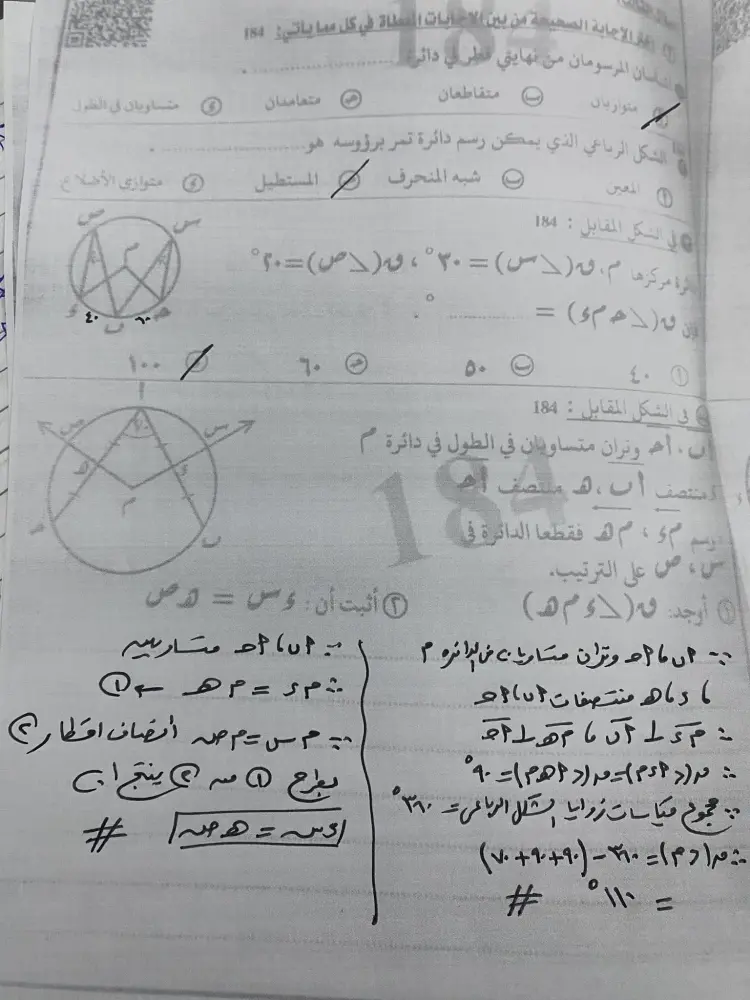 اختر الإجابة الصحيحة من بين الإجابات المعطاة في كل مما يأتي: 184
المرسومان من نهايتي قطر في دائرة
متوازيان ب متقاطعان ج متعامدان د متساويان في الطول
الشكل الرباعي الذي يمكن رسم دائرة تمر برؤوسه هو
أ المعين ب شبه المنحرف ج المستطيل د متوازي الأضلاع
في الشكل المقابل : 184
دائرة مركزها م، ق(∠س) = ٣٠°، ق(∠ص) = ٢٠°
فإن ق(∠حـ م ء) = °.
أ ٤٠ ب ٥٠ ج ٦٠ د ١٠٠
ص
س
م
ء
ب
حـ
٤٠
٦٠
في الشكل المقابل : 184
أب، أحـ وتران متساويان في الطول في دائرة م
ء منتصف أب، هـ منتصف أحـ
رسم م ء، م هـ فقطعا الدائرة في
س، ص على الترتيب.
١ أوجد: ق(∠ء م هـ) ٢ أثبت أن: ء س = هـ ص
أ
ص
س
هـ
ء
م
حـ
ب
٧٠
184
∵ أب، أحـ وتران متساويان في الدائرة م
، ء، هـ منتصفات أب، أحـ
∴ م ء ⊥ أب، م هـ ⊥ أحـ
∴ ق(∠أ ء م) = ق(∠أ هـ م) = ٩٠°
∵ مجموع قياسات زوايا الشكل الرباعي = ٣٦٠°
∴ ق(∠م) = ٣٦٠ - (٩٠ + ٩٠ + ٧٠)
= ١١٠° #
∵ أب، أحـ متساويين
∴ م ء = م هـ ← ①
∵ م س = م ص أنصاف أقطار ②
بطرح ① من ② ينتج أن
ء س = هـ ص #